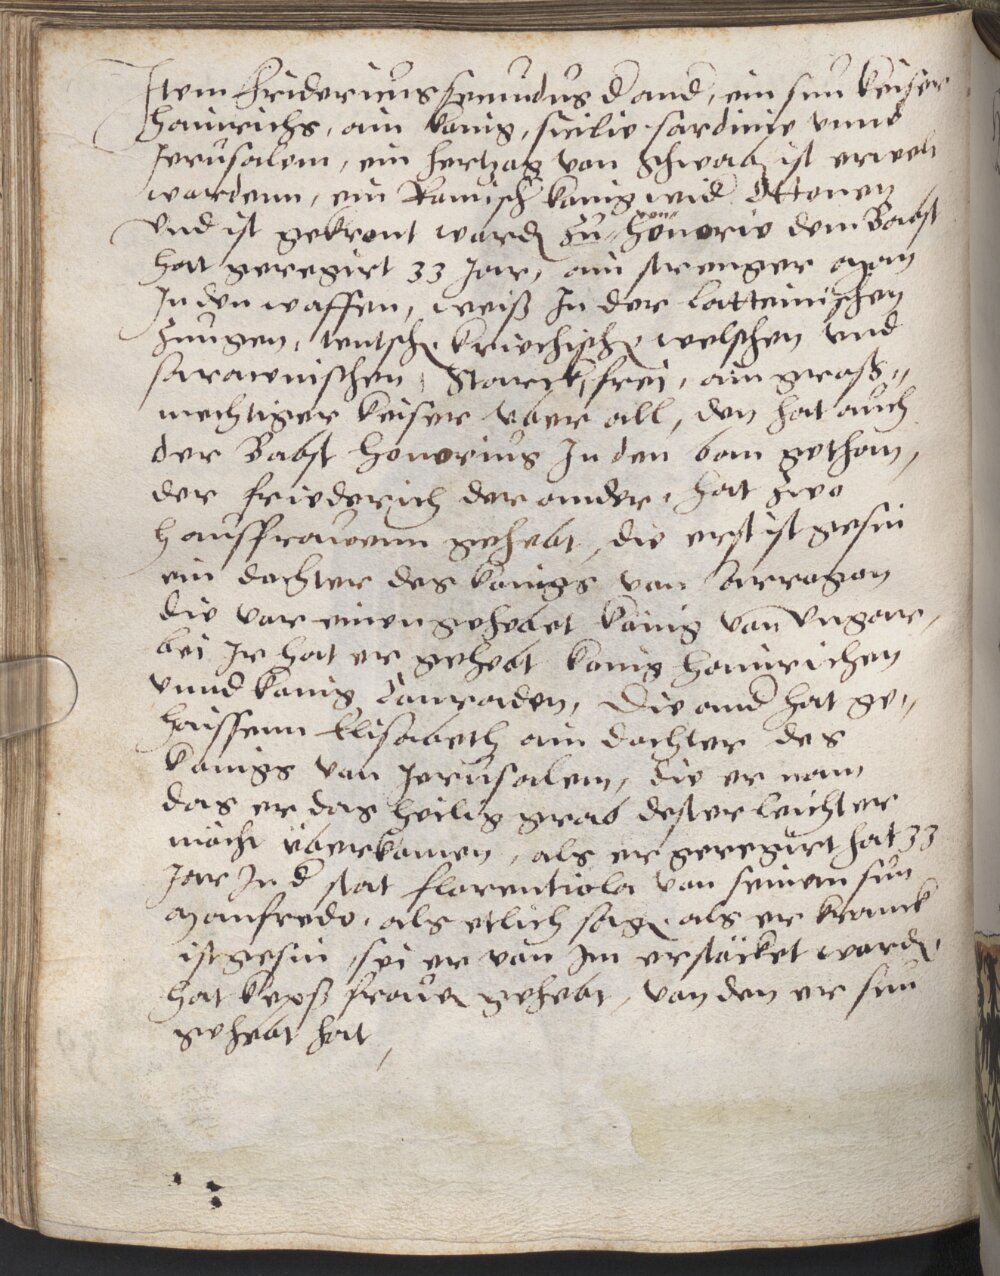 Item Fridericus secundus d and, ein sun keiser
Hainrichs, ain konig, sicilie sardinie unnd
Jerusalem, ein hertzog von Schwab ist erwelt
wordenn, ein Romisch konig wid Ottonen
Und ist gekront word zu von Honorio dem Babst
hat geregirt 33 Jar, ain strenger man
In den waffen, weiß In der lateinischen
Zungen, teutsch kriechisch welschen und
saracenischen, starck, frei, ain groß„
mechtiger keiser uber all, den hat auch
der Babst Honorius In den ban gethan,
der Friederich der ander, hat zwo
hausfrauwenn gehebt, die erst ist gesin
ein dochter des konigs von Arragon
die vor einen gehebt konig vonn Ungarn,
bei Ir hat er gehebt konig Hainrichen
unnd konig Conraden, Die and hat ge„
haissenn Elisabeth ain dochter des
konigs von Jerusalem, die er nam
das er das heilig grab dester leichter
möcht überkomen, als er geregirt hat 33
Jar In d stat florentiola von seinem sun
Manfredo, als etlich sag, als er kranck
ist gesin, sei er von Im erstöcket word,
hat kepß frauen gehebt, von den er sun
gehebt hat,